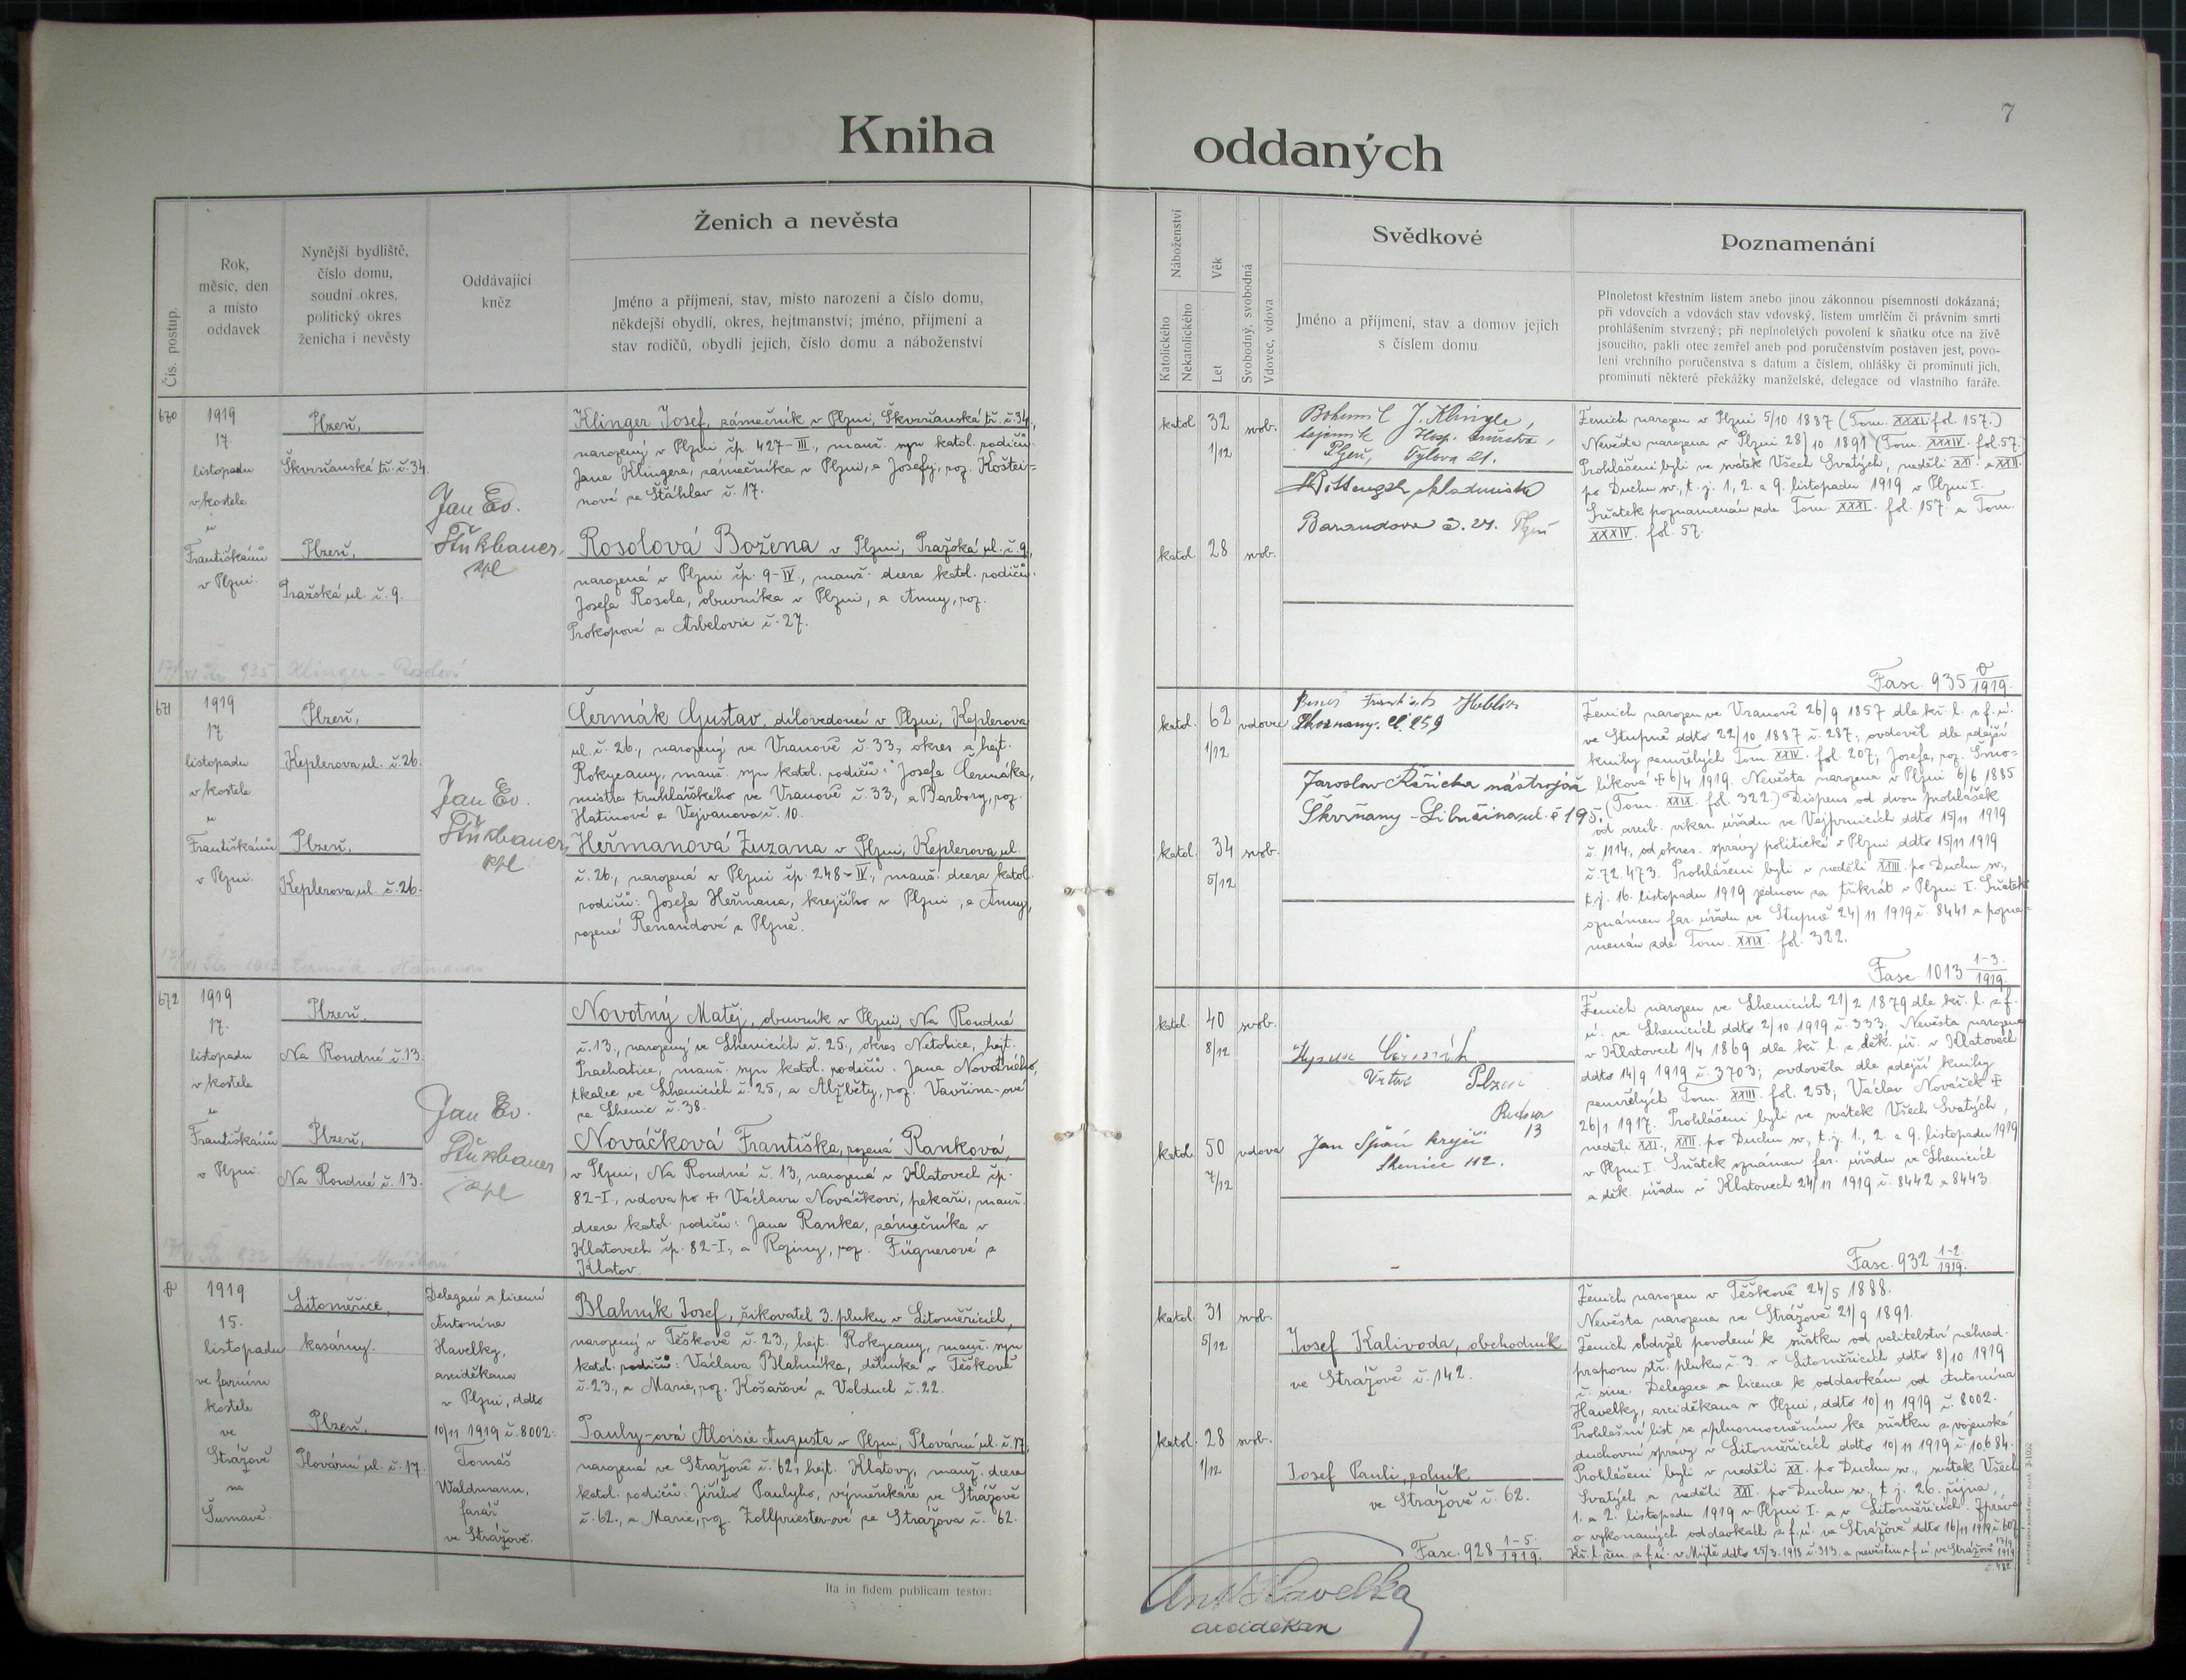 7
Kniha oddaných
Čís. postup.
Rok,
měsíc, den
a místo
oddavek
Nynější bydliště,
číslo domu,
soudní okres,
politický okres
ženicha i nevěsty
Oddávající
kněz
Ženich a nevěsta
Jméno a příjmení, stav, místo narození a číslo domu,
někdejší obydlí, okres, hejtmanství; jméno, příjmení a
stav rodičů, obydlí jejich, číslo domu a náboženství
Náboženství
Katolického
Nekatolického
Věk
Let
Svobodný, svobodná
Vdovec, vdova
Svědkové
Jméno a příjmení, stav a domov jejich
s číslem domu
Poznamenání
Plnoletost křestním listem anebo jinou zákonnou písemností dokázaná;
při vdovcích a vdovách stav vdovský, listem umrlčím či právním smrti
prohlášením stvrzený; při neplnoletých povolení k sňatku otce na živě
jsoucího, pakli otec zemřel aneb pod poručenstvím postaven jest, povo-
lení vrchního poručenstva s datum a číslem, ohlášky či prominutí jich,
prominutí některé překážky manželské, delegace od vlastního faráře.
670
1919
17.
listopadu
v kostele
u
Františkánů
v Plzni.
Plzeň,
Škvrňanská tř. č. 34.
Plzeň,
Pražská ul. č. 9.
Jan Ev.
Štikbauer,
kpl
Klinger Josef, zámečník v Plzni, Škvrňanská tř. č. 34.,
narozený v Plzni čp. 427-III., manž. syn katol. rodičů:
Jana Klingera, zámečníka v Plzni, a Josefy, roz. Koštei-
nové ze Štáhlav č. 17.
Rosolová Božena v Plzni, Pražská ul. č. 9,
narozená v Plzni čp. 9-IV., manž. dcera katol. rodičů:
Josefa Rosola, obuvníka v Plzni, a Anny, roz.
Prokopové z Arbelovic č. 27.
17/XI Str. 935 Klinger - Rosolová
katol.
32
1/12
svob.
katol.
28
svob.
Bohumil J. Klinger,
tajemník Hosp. družstva,
Plzeň, Tylova 21.
skladníka
č. 24. Plzeň
Ženich narozen v Plzni 5/10 1887 (Tom. XXXI. fol. 157.)
Nevěsta narozena v Plzni 28/10 1891 (Tom. XXXIV. fol. 57.)
Prohlášeni byli ve svátek Všech Svatých, neděli XXI. a XXII.
po Duchu sv., t. j. 1., 2. a 9. listopadu 1919 v Plzni I.
Sňatek poznamenán zde Tom. XXXI. fol. 157. a Tom.
XXXIV. fol. 57.
Fasc. 935 /1919.
671
1919
17.
listopadu
v kostele
u
Františkánů
v Plzni.
Plzeň,
Keplerova ul. č. 26.
Plzeň,
Keplerova ul. č. 26.
Jan Ev.
Štikbauer,
kpl
Čermák Gustav, dílovedoucí v Plzni, Keplerova
ul. č. 26., narozený ve Vranově č. 33., okres a hejt.
Rokycany, manž. syn katol. rodičů: Josefa Čermáka,
mistra truhlářského ve Vranově č. 33., a Barbory, roz.
Hatinové z Vejvanova č. 10.
Heřmanová Zuzana v Plzni, Keplerova ul.
č. 26., narozená v Plzni čp. 248-IV., manž. dcera katol.
rodičů: Josefa Heřmana, krejčího v Plzni, a Anny,
rozené Renandové z Plzně.
17/XI Str. 1013 Čermák - Heřmanová
katol.
62
1/12
vdovec
katol.
34
5/12
svob.
František
Skvrnany. č 259
Jaroslav Řeřicha nástrojář
Škvrňany - Libušina ul. č 195.
Ženich narozen ve Vranově 26/9 1857 dle kř. l. z f. ú.
ve Stupně ddto 22/10 1887 č. 287; ovdověl dle zdejší
knihy zemřelých Tom. XXIV. fol. 207, Josefa, roz. Smo-
líková + 6/4 1919. Nevěsta narozena v Plzni 6/6 1885
(Tom. XXIX. fol. 322.) Dispens od dvou prohlášek
od arcib. vikar. úřadu ve Vejprnicích ddto 15/11 1919
č. 1114, od okres. správy politické v Plzni ddto 15/11 1919
č. 72.473. Prohlášeni byli v neděli XXIII. po Duchu sv.,
t. j. 16. listopadu 1919 jednou za třikrát v Plzni I. Sňatek
oznámen far. úřadu ve Stupně 24/11 1919 č. 8441 a pozna-
menán zde Tom. XXIX. fol. 322.
Fasc. 1013 1-3./1919.
672
1919
17.
listopadu
v kostele
u
Františkánů
v Plzni.
Plzeň,
Na Roudné č. 13.
Plzeň,
Na Roudné č. 13.
Jan Ev.
Štikbauer
kpl
Novotný Matěj, obuvník v Plzni, Na Roudné
č. 13., narozený ve Lhenicích č. 25., okres Netolice, hejt.
Prachatice, manž. syn katol. rodičů: Jana Novotného,
tkalce ve Lhenicích č. 25., a Alžběty, roz. Vavřina-ové
ze Lhenic č. 38.
Nováčková Františka, rozená Ranková,
v Plzni, Na Roudné č. 13., narozená v Klatovech čp.
82-I., vdova po + Václavu Nováčkovi, pekaři, manž.
dcera katol. rodičů: Jana Ranka, zámečníka v
Klatovech čp. 82-I., a Roziny, roz. Fügnerové z
Klatov.
17/XI Str. 932 Novotný - Nováčková
katol.
40
8/12
svob.
katol.
50
7/12
vdova
Čermák
Plzen
13
Jan Špán krejčí
Lhenice 112.
Ženich narozen ve Lhenicích 21/2 1879 dle kř. l. z f.
ú. ve Lhenicích ddto 2/10 1919 č. 333. Nevěsta narozena
v Klatovech 1/4 1869 dle kř. l. z děk. úř. v Klatovech
ddto 14/9 1919 č. 3703; ovdověla dle zdejší knihy
zemřelých Tom. XXIII. fol. 258, Václav Nováček +
26/1 1917. Prohlášeni byli ve svátek Všech Svatých,
neděli XXI., XXII. po Duchu sv., t. j. 1., 2. a 9. listopadu 1919
v Plzni I. Sňatek oznámen far. úřadu ve Lhenicích
a děk. úřadu v Klatovech 24/11 1919 č. 8442 a 8443.
Fasc. 932 1-2./1919.
1919
15.
listopadu
ve farním
kostele
ve
Strážově
na
Šumavě.
Litoměřice,
kasárny.
Plzeň,
Plovární ul. č. 17.
Delegací a licencí
Antonína
Havelky,
arciděkana
v Plzni, ddto
10/11 1919 č. 8002:
Tomáš
Waldmann,
farář
ve Strážově.
Blahník Josef, šikovatel 3. pluku v Litoměřicích,
narozený v Těškově č. 23., hejt. Rokycany, manž. syn
katol. rodičů: Václava Blahníka, dělníka v Těškově
č. 23., a Marie, roz. Košařové z Volduch č. 22.
Pauly-ová Aloisie Augusta v Plzni, Plovární ul. č. 17.
narozená ve Strážově č. 62., hejt. Klatovy, manž. dcera
katol. rodičů: Jiřího Paulyho, výměnkáře ve Strážově
č. 62., a Marie, roz. Zollpriester-ové ze Strážova č. 62.
katol.
31
5/12
svob.
katol.
28
1/12
svob.
Josef Kalivoda, obchodník
ve Strážově č. 142.
Josef Pauli, rolník
ve Strážově č. 62.
Fasc. 928 1-5./1919.
Ženich narozen v Těškově 24/5 1888.
Nevěsta narozena ve Strážově 21/9 1891.
Ženich obdržel povolení k sňatku od velitelství náhrad.
praporu stř. pluku č. 3. v Litoměřicích ddto 8/10 1919
č. sine. Delegace a licence k oddavkám od Antonína
Havelky, arciděkana v Plzni, ddto 10/11 1919 č. 8002.
Prohlašní list se zplnomocněním ke sňatku z vojenské
duchovní správy v Litoměřicích ddto 10/11 1919 č. 10684.
Prohlášeni byli v neděli XX. po Duchu sv., svátek Všech
Svatých a neděli XXI. po Duchu sv., t. j. 26. října,
1. a 2. listopadu 1919 v Plzni I. a v Litoměřicích. Zpráva
o vykonaných oddavkách z f. ú. ve Strážově ddto 16/11 1919 č. 607.
Kř. l. žen. z f. ú. v Mýtě ddto 25/3. 1913 č. 313. a nevěstin z f. ú. ve Strážově 17/9 1919
č. 482.
Ita in fidem publicam testor:
Ant. Havelka
arciděkan